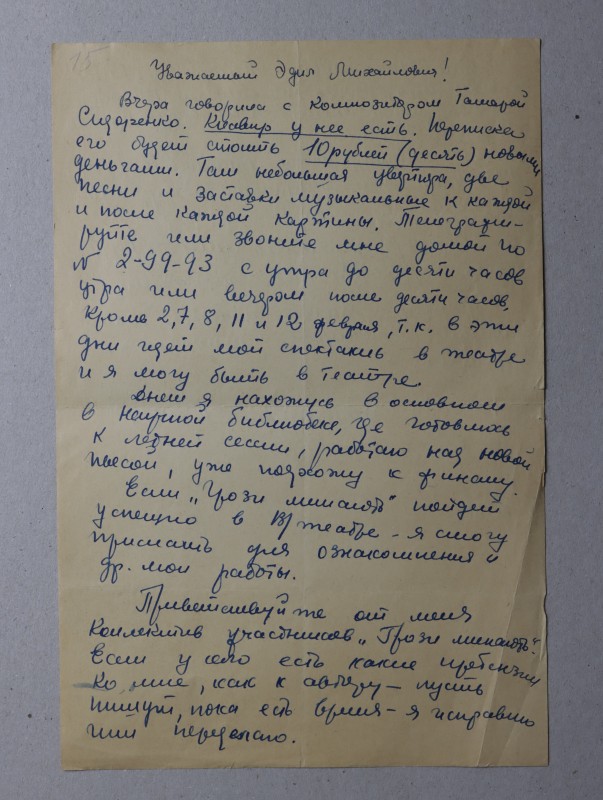 15
Уважаемый Эдил Михайлович!
Вчера говорила с композитором Тамарой
Сидоренко. Клавир у нее есть. Переписка
его будет стоить 10 рублей (десять) новыми
деньгами. Там небольшая увертюра, две
песни и заставки музыкальные к каждой
и после каждой картины. Телеграфи-
руйте или звоните мне домой по
N 2-99-93 с утра до десяти часов
утра или вечером после десяти часов,
кроме 2, 7, 8, 11 и 12 февраля, т.к. в эти
дни идет мой спектакль в театре
и я могу быть в театре.
Днем я нахожусь в основном
в научной библиотеке, где готовлюсь
к летней сессии, работаю над новой
пьесой, уже подхожу к финалу.
Если „Грози минають" пойдет
успешно в театре - я смогу
прислать для ознакомления и
др. мои работы.
Приветствуйте от меня
коллектив участников „Грози минають".
Если у кого есть какие претензии
ко мне, как к автору - пусть
пишут, пока есть время - я исправлю
или переделаю.